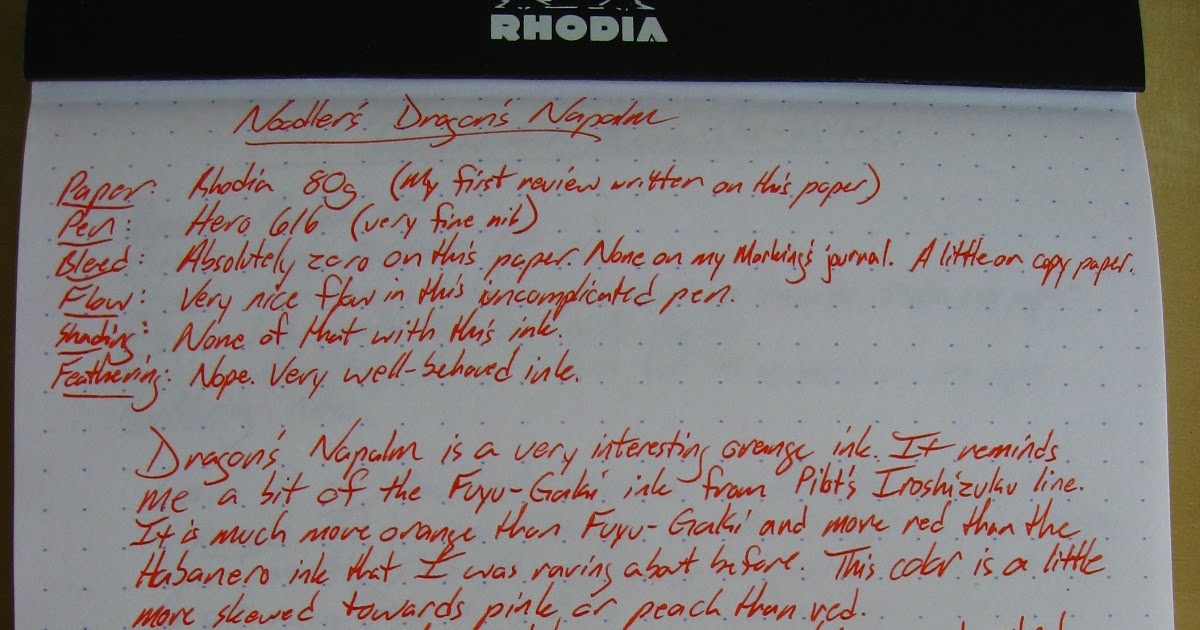 RHODIA
Noodler's Dragon's Napalm
Paper: Rhodia 80g (My first review written on this paper)
Pen: Hero 616 (very fine nib)
Bleed: Absolutely zero on this paper. None on my Markings journal. A little on copy paper.
Flow: Very nice flow in this uncomplicated pen.
Shading: None of that with this ink.
Feathering: Nope. Very well-behaved ink.
Dragon's Napalm is a very interesting orange ink. It reminds
me a bit of the Fuyu-Gaki ink from Pilot's Iroshizuku line.
It is much more orange than Fuyu-Gaki and more red than the
Habanero ink that I was raving about before. This color is a little
more skewed towards pink or peach than red.